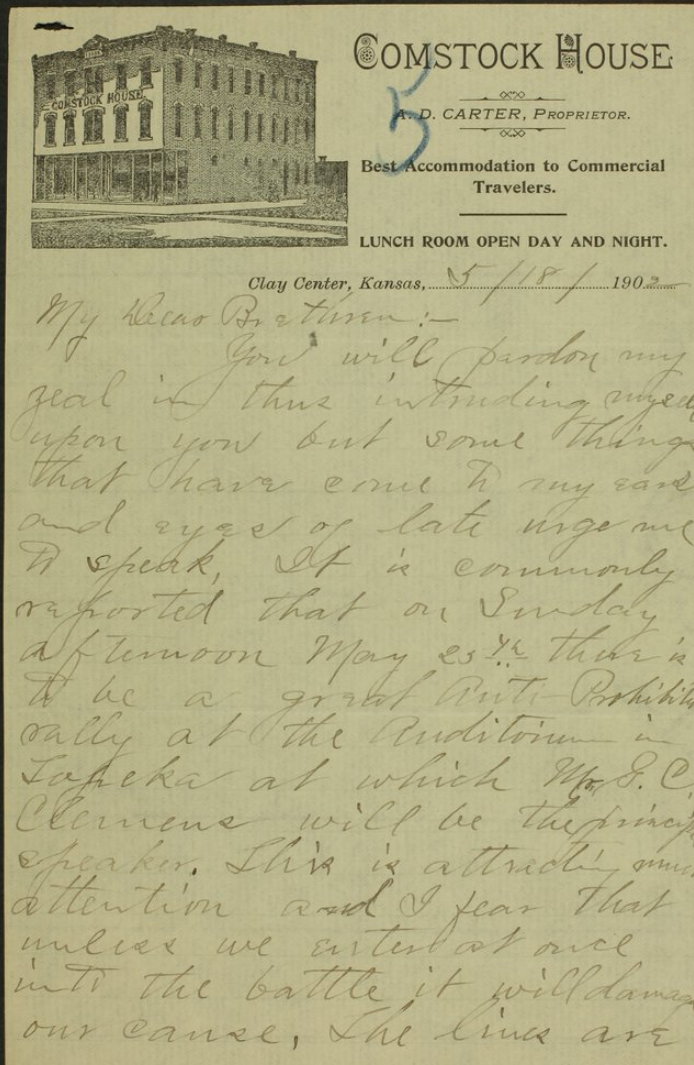 COMSTOCK HOUSE.
COMSTOCK HOUSE
5
A. D. CARTER, PROPRIETOR.
Best Accommodation to Commercial
Travelers.
LUNCH ROOM OPEN DAY AND NIGHT.
Clay Center, Kansas, 5/18/ 1902
My Dear Brethren:-
You will pardon my
zeal in thus intruding myself
upon you but some things
that have come to my ears
and eyes of late urge me
to speak, It is commonly
reported that on Sunday
afternoon May 25th there is
to be a great Anti-Prohibiti
rally at the Auditorium in
Topeka at which Mr. G. C.
Clemens will be the princip
speaker. This is attracting much
attention and I fear that
unless we enter at once
into the battle it will damage
our cause. The lines are